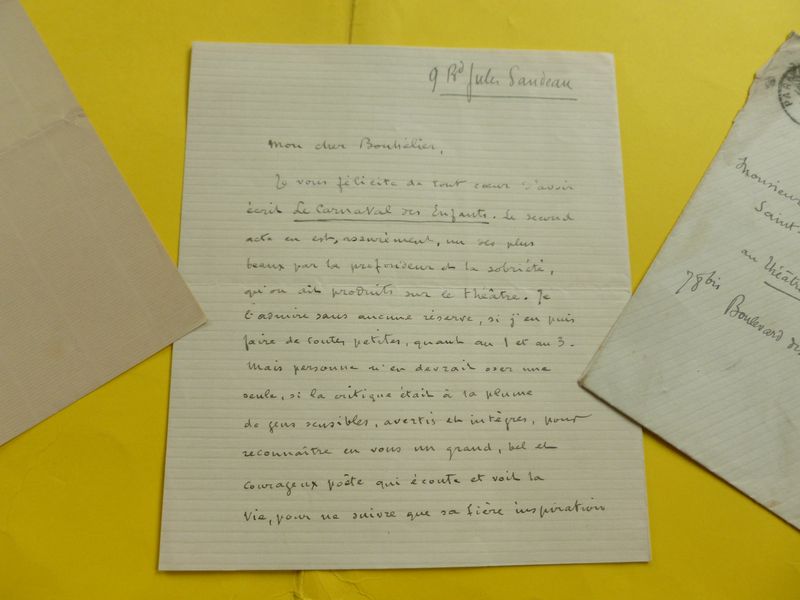 9 Bd Jules Sandeau
Mon cher Bouhélier,
Je vous félicite de tout cœur d'avoir
écrit Le Carnaval des Enfants. Le second
acte en est, assurément, un des plus
beaux par la profondeur et la sobriété,
qu'on ait produits sur le théâtre. Je
l'admire sans aucune réserve, si j'en puis
faire de toutes petites, quant au 1 et au 3.
Mais personne n'en devrait oser une
seule, si la critique était à la plume
de gens sensibles, avertis et intègres, pour
reconnaître en vous un grand, bel et
courageux poète qui écoute et voit la
Vie, pour ne suivre que sa fière inspiration
PARIS
Monsieur
Saint-
au Théâtre
78 bis
Boulevard des